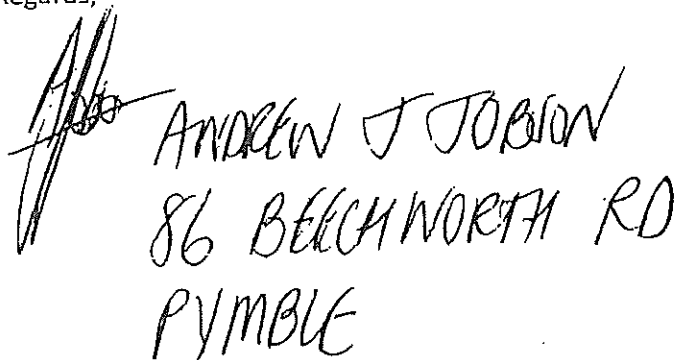 Regards,
ANDREW J JOBSON
86 BEECHWORTH RD
PYMBLE